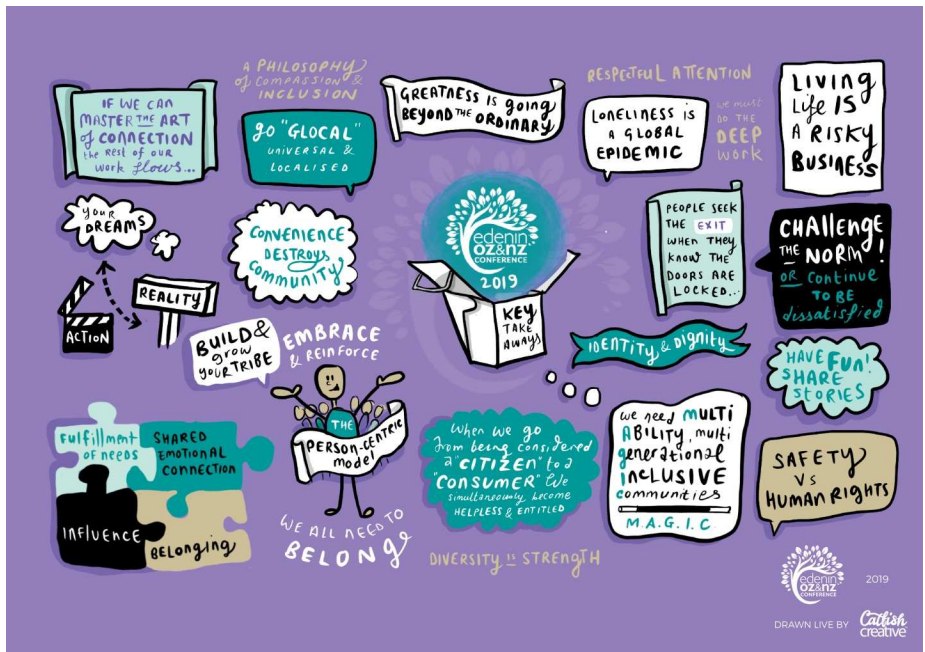 IF WE CAN
MASTER THE ART
of CONNECTION
the REST of OUR
WORK flows...
A PHILOSOPHY
of COMPASSION &
INCLUSION
go "GLOCAL"
UNIVERSAL &
LOCALISED
GREATNESS IS going
BEYOND THE ORDINARY
RESPECTFUL ATTENTION
LONELINESS IS
A GLOBAL
EPIDEMIC
we must
DO THE
DEEP
WORK
LIVING
Life IS
A RISKY
BUSINESS
YOUR
DREAMS
ACTION
REALITY
CONVENIENCE
DESTROYS
COMMUNITY
edenin
OZ&NZ
CONFERENCE
2019
KEY
TAKE
AWAYS
PEOPLE SEEK
THE EXIT
WHEN THEY
KNOW THE
DOORS ARE
LOCKED...
CHALLENGE
THE NORM!
OR Continue
TO BE
dissatisfied
BUILD &
grow
YOUR TRIBE
EMBRACE
& REINFORCE
THE
PERSON-CENTRIC
model
WE ALL NEED TO
BELONG
IDENTITY & Dignity
HAVE FUN!
SHARE
STORIES
Fulfillment
OF NEEDS
SHARED
EMOTIONAL
CONNECTION
INFLUENCE
BELONGING
When we go
from being considered
a "CITIZEN" to a
"CONSUMER" We
simultaneously become
HELPLESS & ENTITLED
DIVERSITY IS STRENGTH
we need MULTI
ABILITY, multi
generational
INCLUSIVE
communities
M.A.G.I.C.
SAFETY
VS
HUMAN RIGHTS
edenin
OZ&NZ
CONFERENCE
2019
DRAWN LIVE BY
Catfish
creative